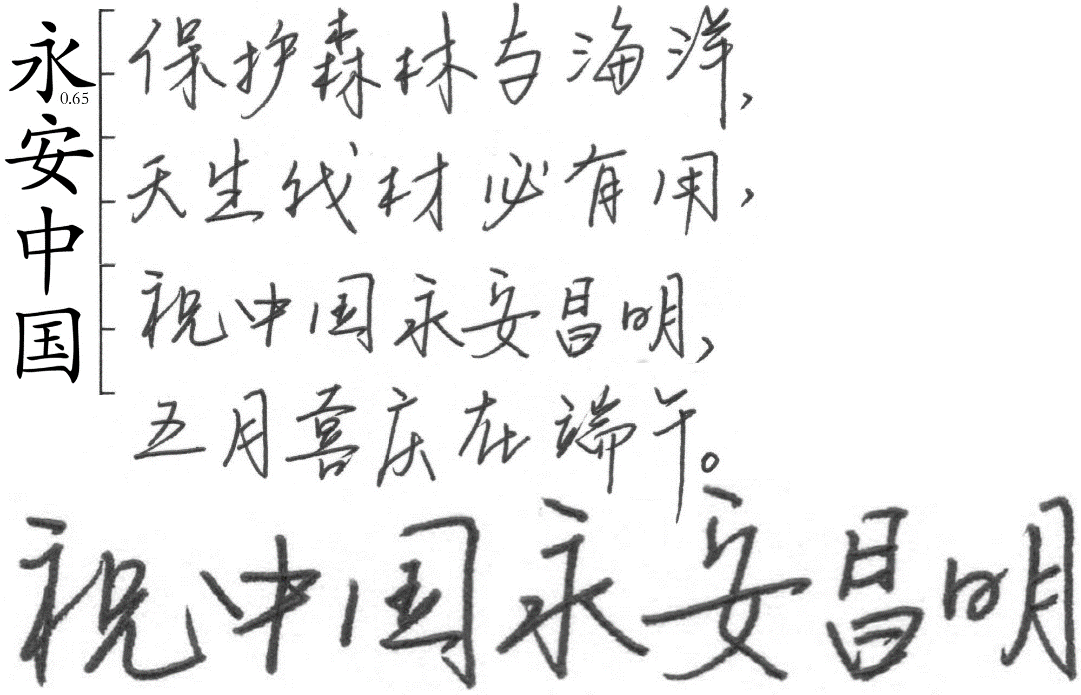 永安中国
0.65
保护森林与海洋，
天生伐材必有用，
祝中国永安昌明，
五月喜庆在端午。
祝中国永安昌明